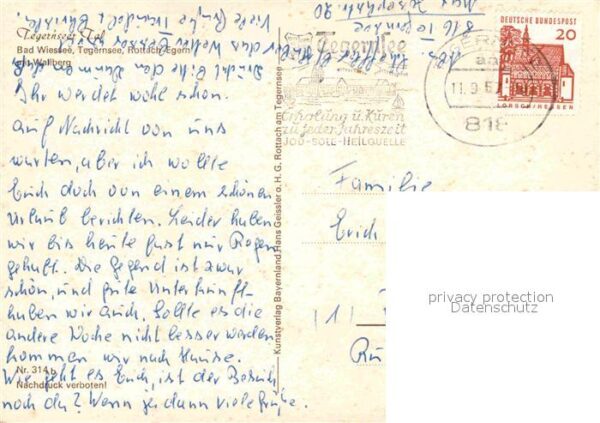 Tegernseer Tal
Bad Wiessee, Tegernsee, Rottach-Egern
und Wallberg
Ihr werdet wohl schon
auf Nachricht von uns
warten, aber ich wollte
Euch doch von einem schönen
Urlaub berichten. Leider haben
wir bis heute fast nur Regen
gehabt. Die Gegend ist zwar
schön, und gute Unterkunft
haben wir auch. Sollte es die
andere Woche nicht besser werden
kommen wir nach Hause.
Nr. 314 b
Wie geht es Euch, ist der Besuch
Nachdruck verboten!
noch da? Wenn ja dann viele Grüße.
Kunstverlag Bayernland, Hans Geissler o. H. G. Rottach am Tegernsee
816 Tegernsee
Tegernsee
Erholung u. Kuren
zu jeder Jahreszeit
JOD-SOLE-HEILQUELLE
818
DEUTSCHE BUNDESPOST
20
LORSCH/HESSEN
Familie
Erich
(1)
privacy protection
Datenschutz